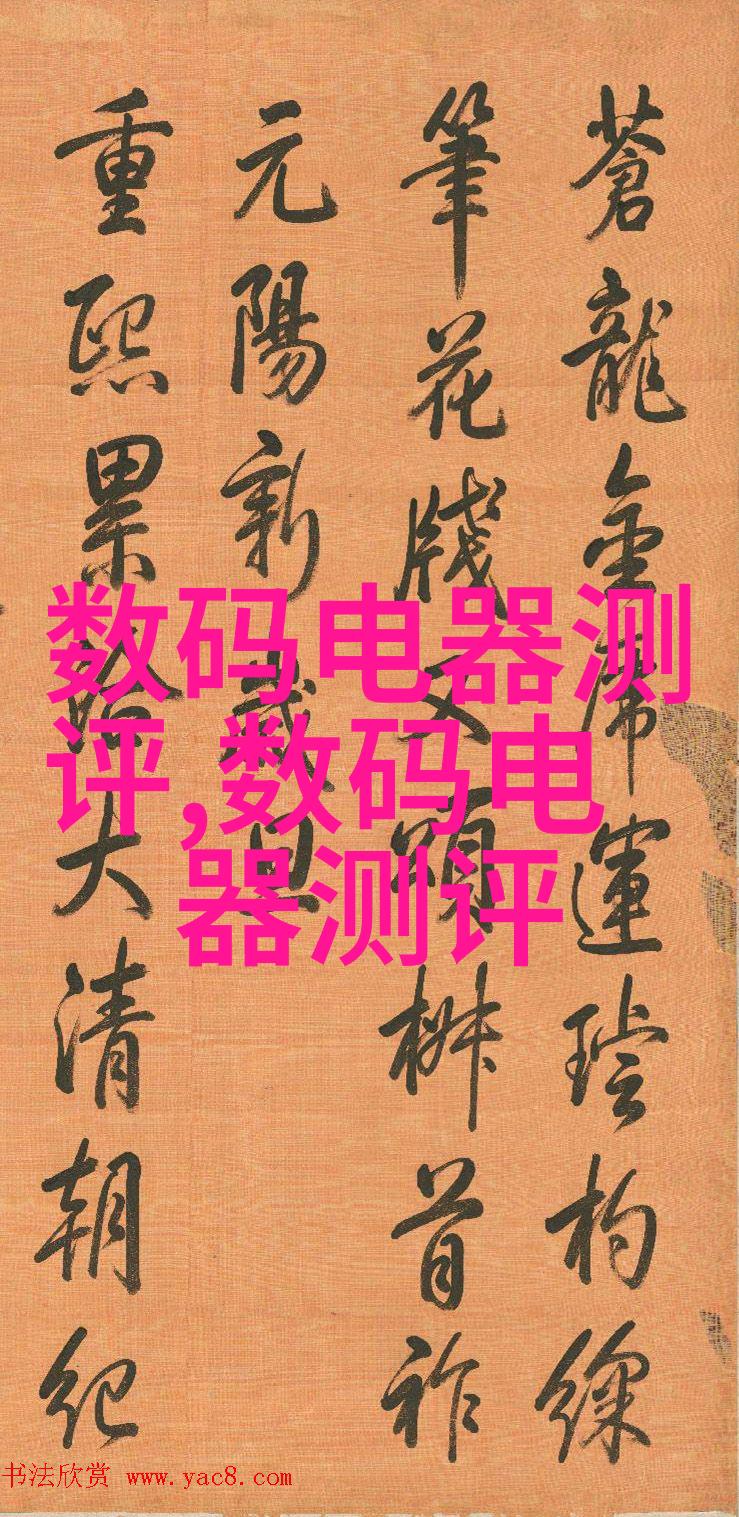 蒼龍金運杓
筆花牋又首祚
元陽新歲旦
重熙累洽大清朝紀
数码电器测
评,数码电
器测评
书法欣赏 www.yac8.com